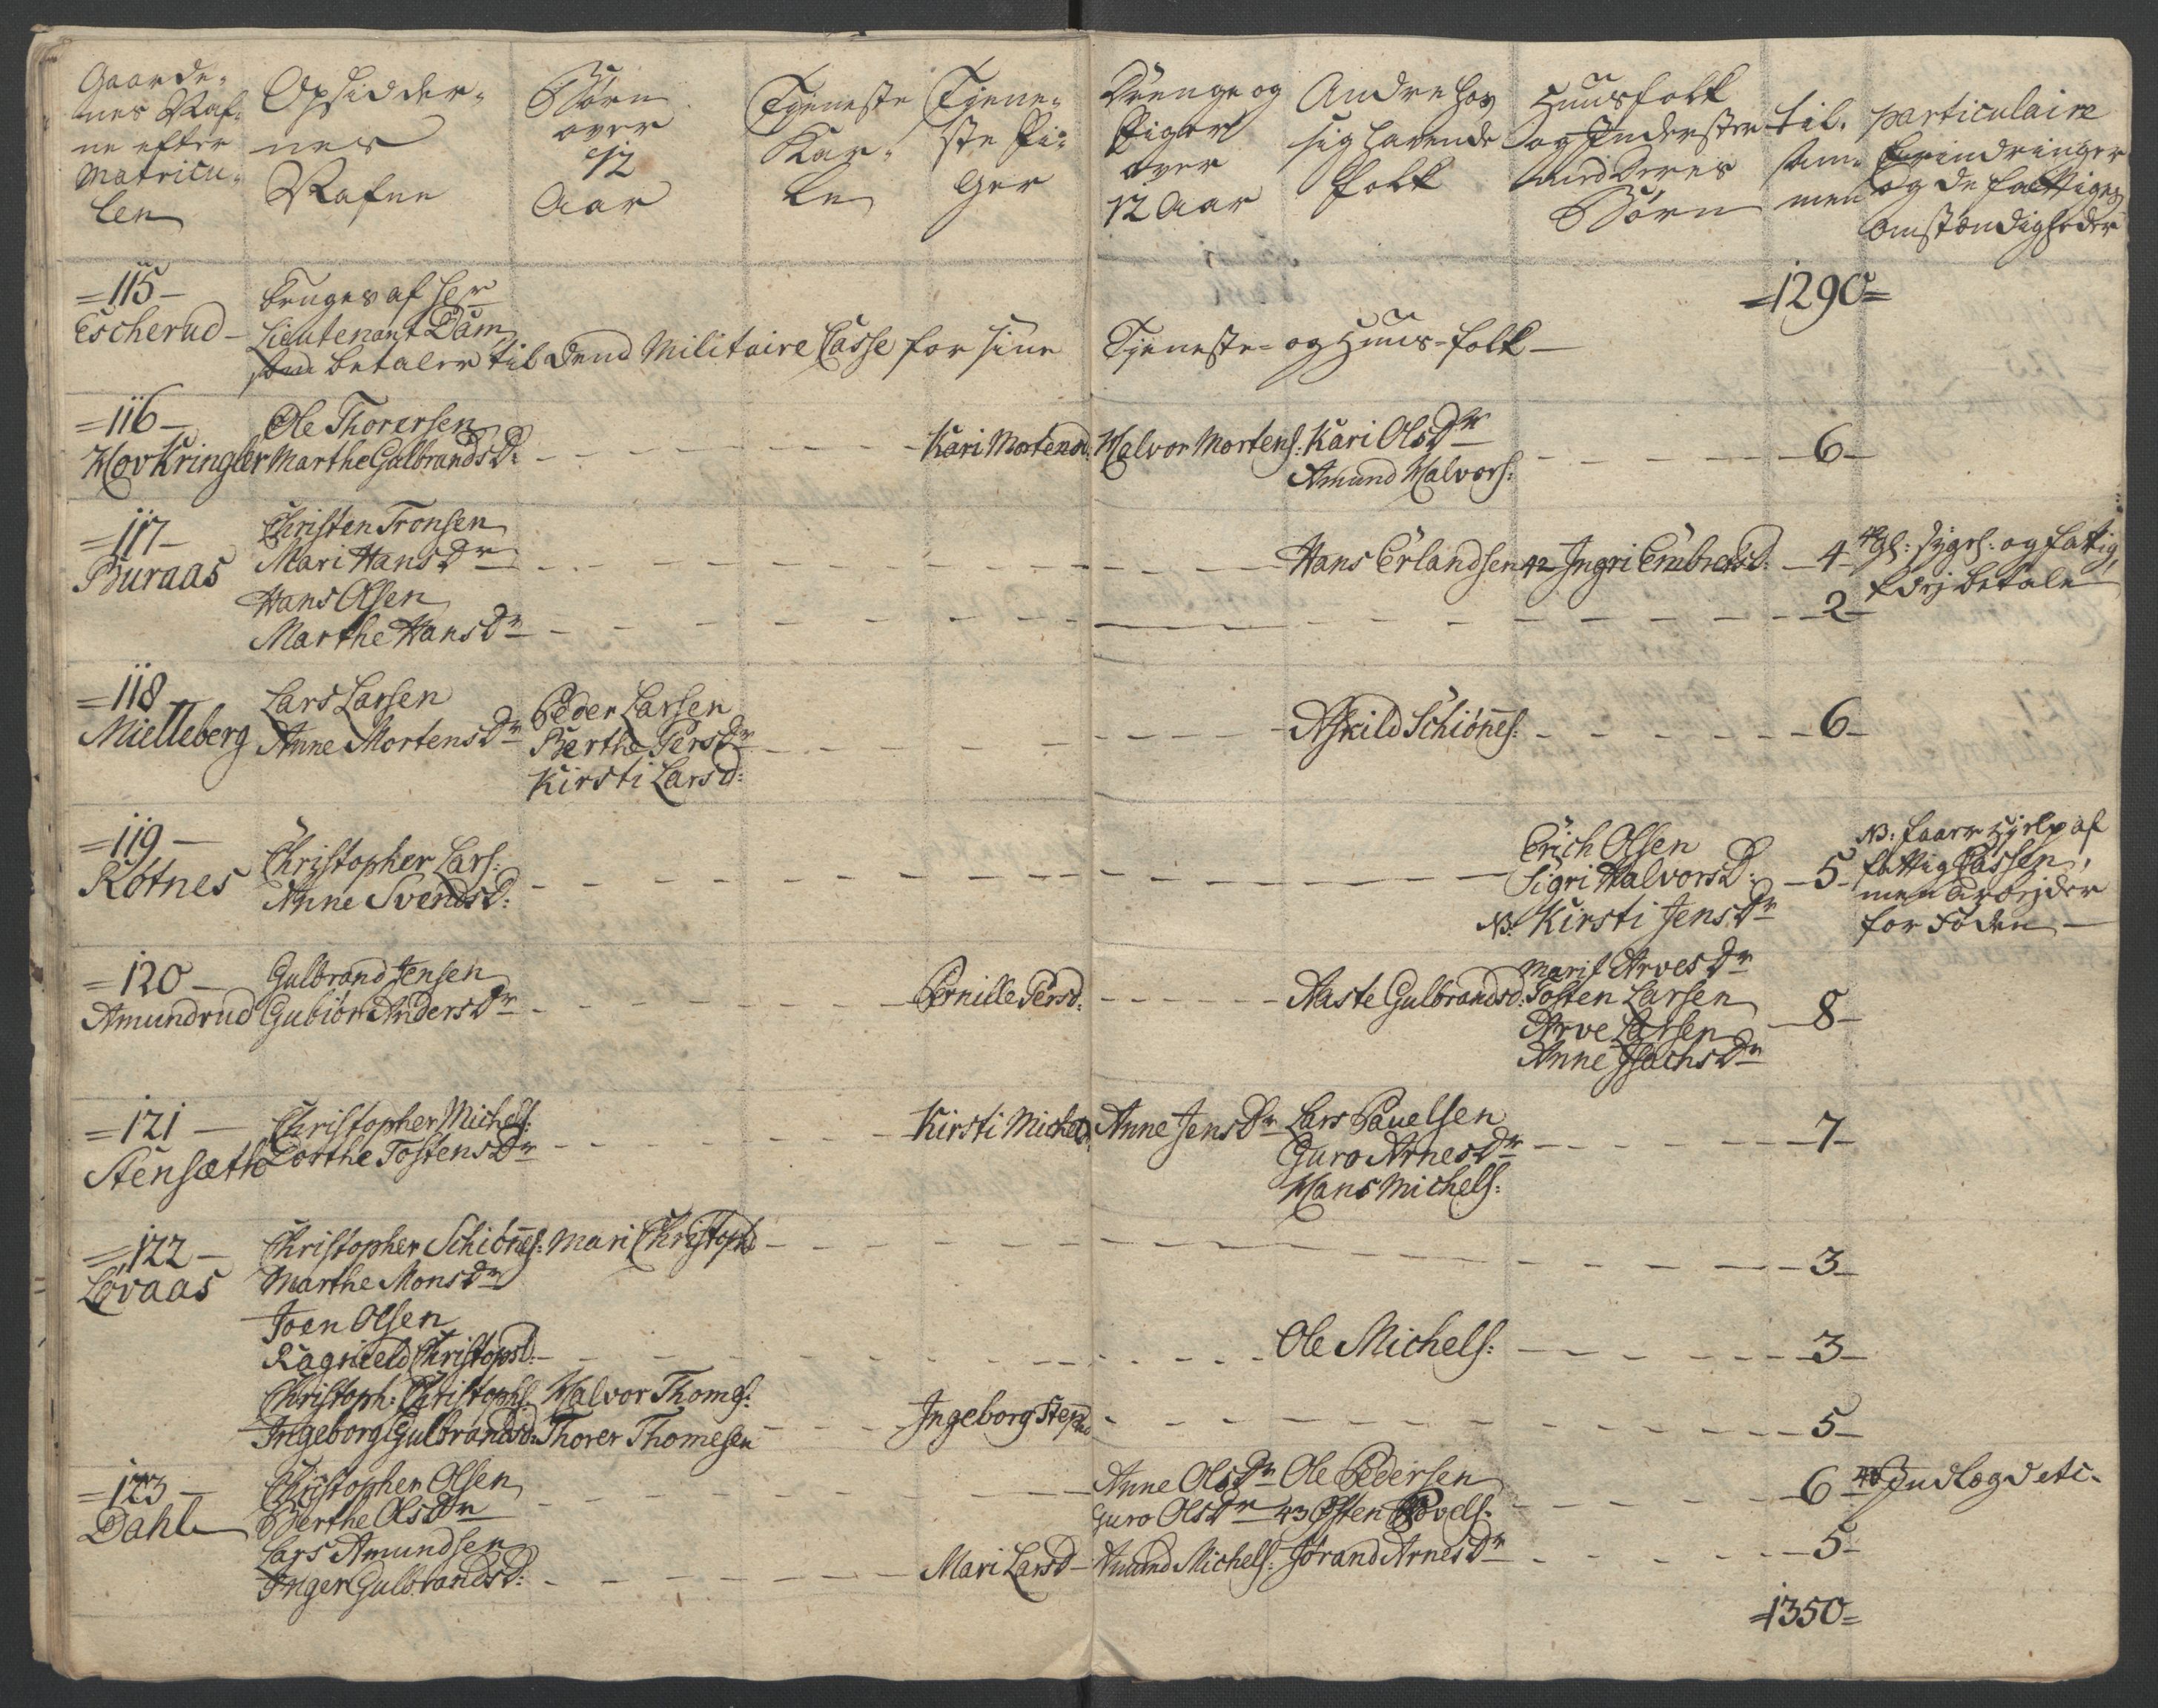 Gaarde-
nes Naf-
ne efter
Matricu-
len
Opsidder-
nes
Nafne
Børn
over
12
Aar
Tjeneste
Kar-
le
Tjene-
ste Pi-
ger
Drenge og
Piger
over
12 Aar
Andre hos
sig havende
Folk
Huusfolk
og Inderster
med deres
Børn
til-
sam-
men
particulaire
Erindringer
og de fattiges
omstændigheder
=115-
Escherud-
bruges af Hr
Lieutenant Dam,
som betaler til dend Militaire Casse for sine Tjeneste- og Huus-folk-
=1290=
=116-
HovKringler
Ole Thorersen
Marthe Gulbrands D:
Kari Mortensd:
Halvor Mortens:
Kari Ols Dr
Amund Halvors:
-6-
=117-
Buraas
Christen Tronsen
Mari Hans Dr
Hans Erlandsen
42 Ingri Embretsd:
-4-
42 sygel: og fattig,
kand ej betale
Hans Olsen
Marthe Hans Dr
-2-
=118-
Mielleberg
Lars Larsen
Anne Mortens Dr
Peder Larsen
Berthe Pers Dr
Kirsti Larsd:
Askild Schiönes:
-6-
=119-
Kotnes
Christopher Lars:
Anne Svends D:
Erich Olsen
Sigri Halvors D:
NB: Kirsti Jens Dr
-5-
NB: faar hjelp af
fattig Cassen,
men arbejder
for Føden-
=120-
Amundrud
Gulbrand Jensen
Gubiör Anders Dr
Pernille Persd:
Aaste Gulbrandsd:
Marit Arves Dr
Tosten Larsen
Arve Larsen
Anne Isachs Dr
-8-
=121-
Stensæth
Christopher Michels:
Dorthe Tostens Dr
Kirsti Michelsd
Anne Jens Dr
Lars Pauelsen
Guro Arnes Dr
Hans Michels:
-7-
=122-
Løvaas
Christopher Schiönes:
Marthe Mons Dr
Mari Christophd
-3-
Joen Olsen
Ragnield Christopsd:
Ole Michels:
-3-
Christoph: Christophs:
Ingeborg Gulbrandsd:
Halvor Thomes:
Thorer Thomesen
Ingeborg Stephd
-5-
=123-
Dahl
Christopher Olsen
Berthe Ols Dr
Anne Ols Dr
Guro Ols Dr
Ole Pedersen
43 Østen Povels:
-6-
43 Indlagd etc.
Lars Amundsen
Inger Gulbrandsd:
Mari Larsd-
Amund Michels:
Jørand Arnes Dr
-5-
=1350=